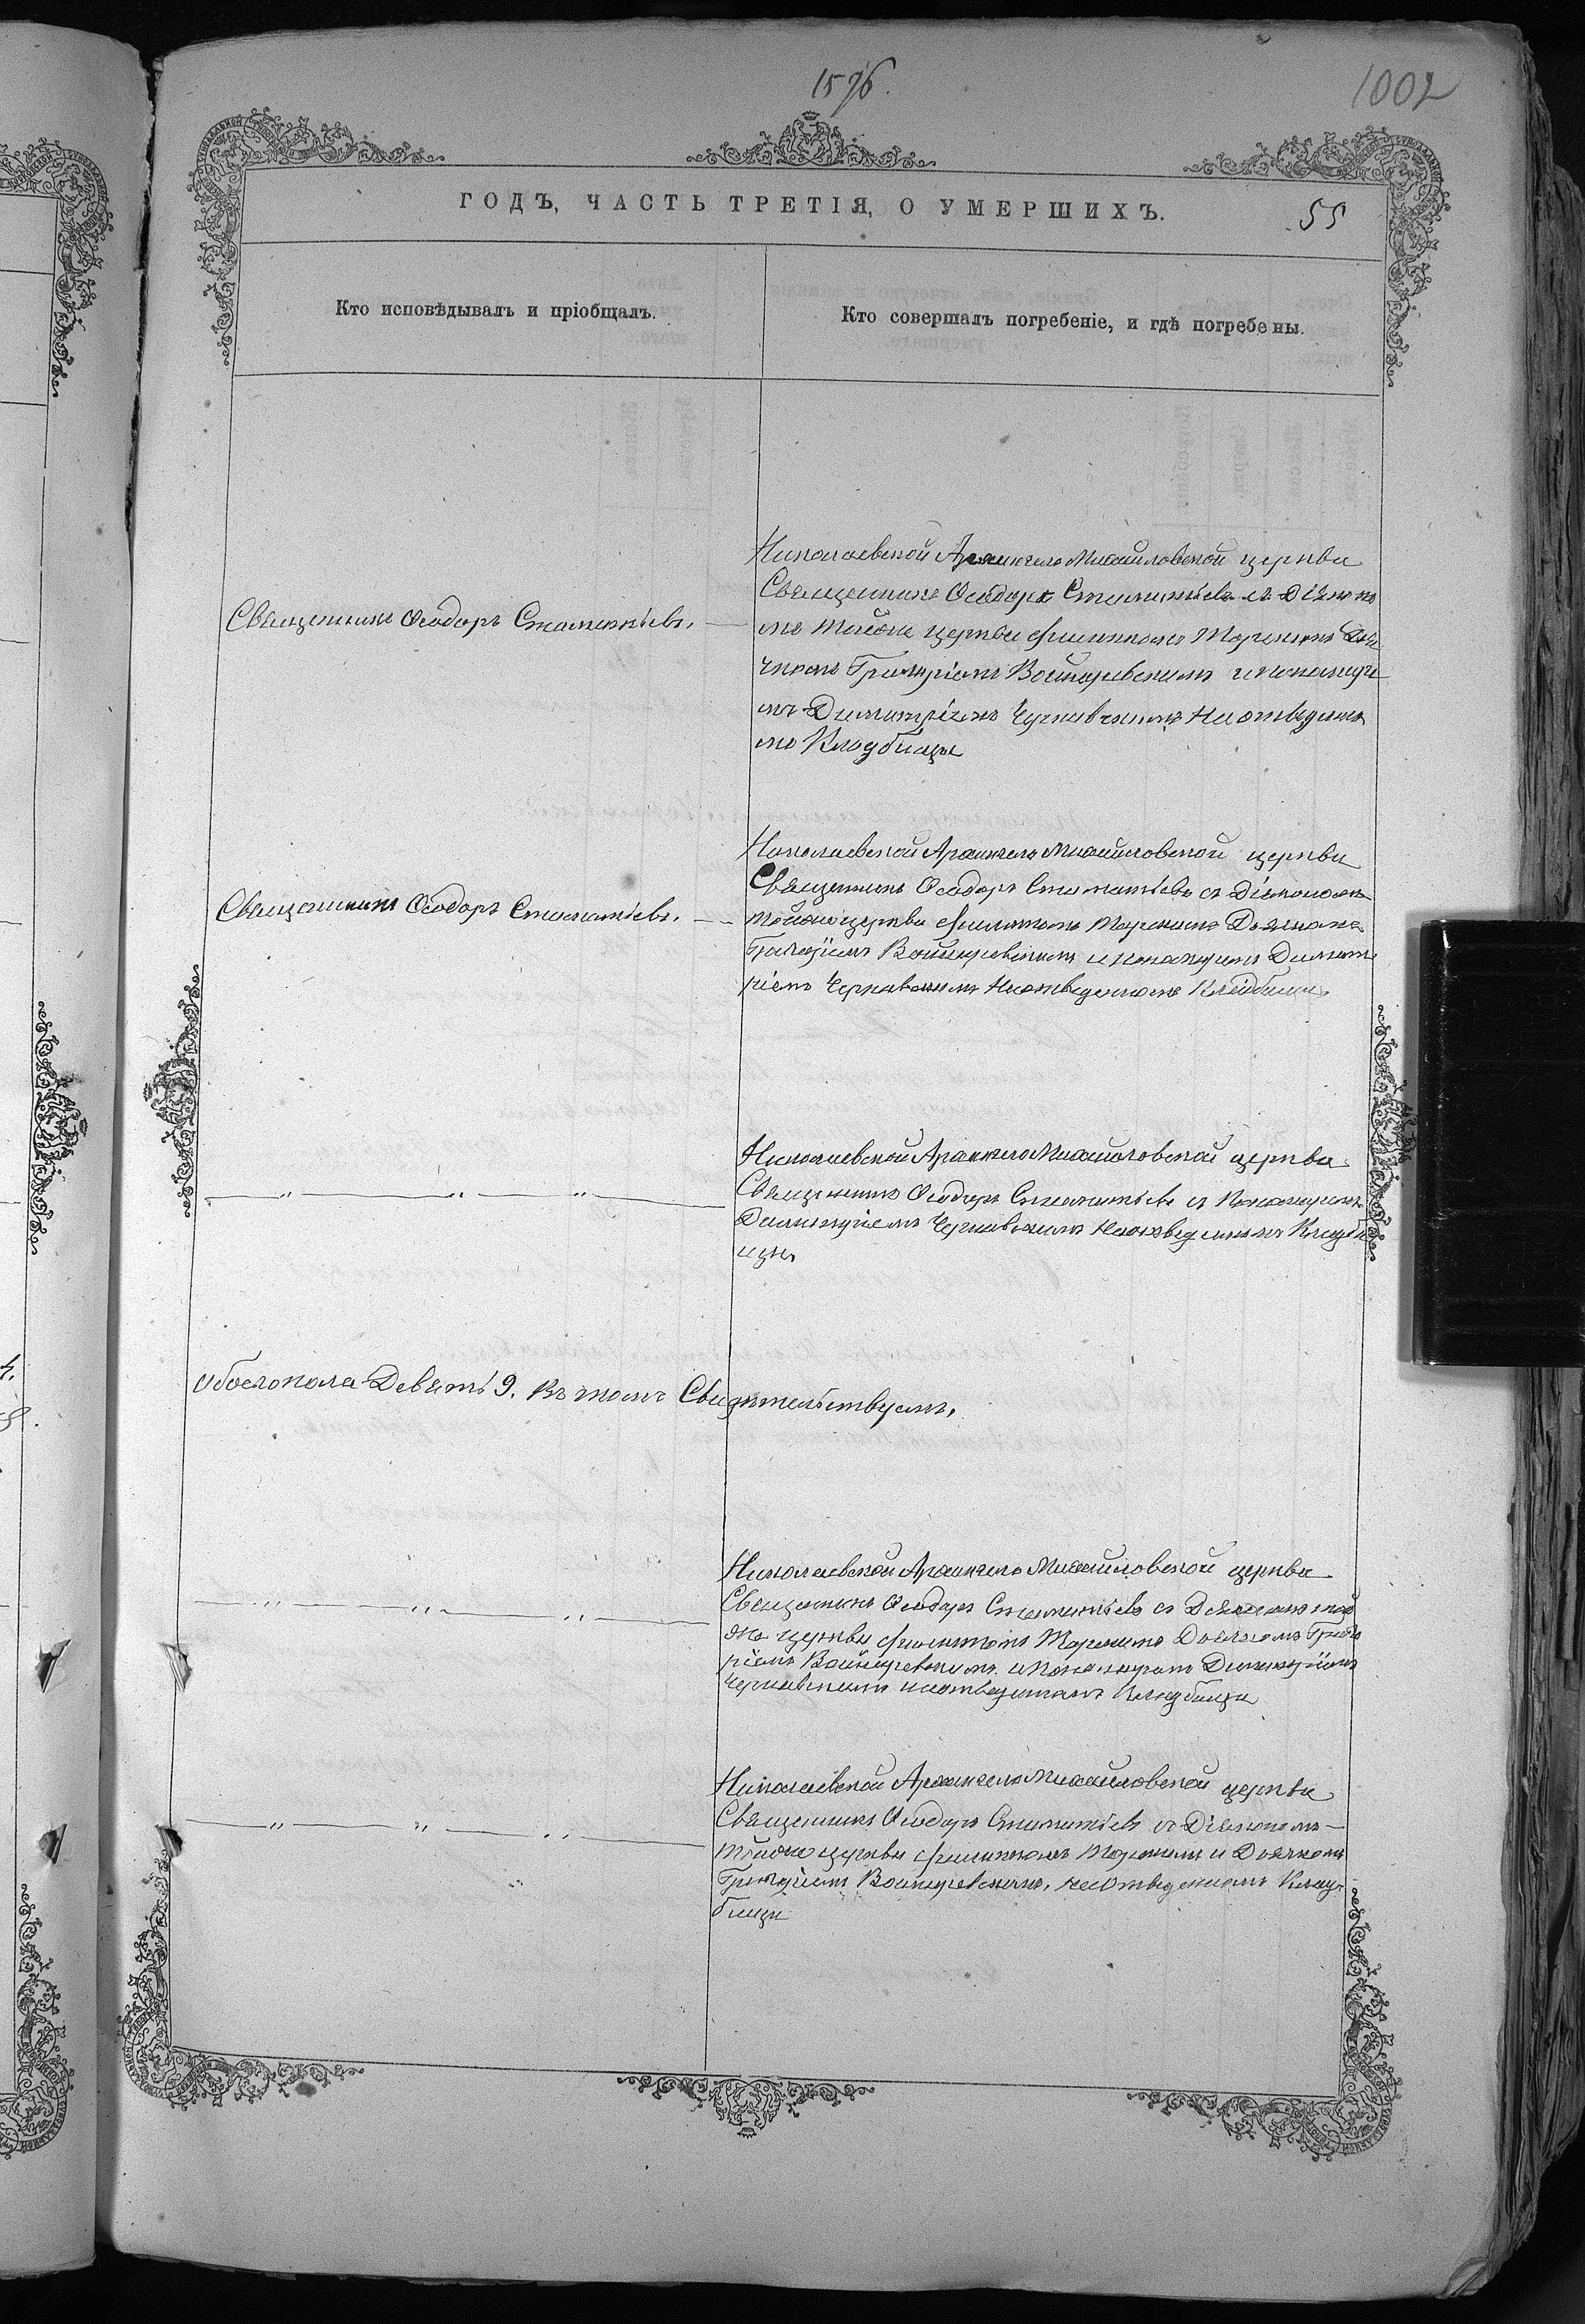 1576.
1002
ГОДЪ, ЧАСТЬ ТРЕТІЯ, О УМЕРШИХЪ.
55
Кто исповѣдывалъ и пріобщалъ.
Кто совершалъ погребеніе, и гдѣ погребены.
Священникъ Ѳеодоръ Стаматьевъ.
Николаевской Архангело Михайловской церкви
Священникъ Ѳеодоръ Стаматьевъ съ Діякона
мъ тойже церкви Филиппомъ Дья
чкомъ Григоріемъ Войнаровскимъ и понамаре
мъ Димитріемъ Чернявскимъ На отведеном
мъ Кладбищѣ
Священникъ Ѳеодоръ Стаматьевъ.
Николаевской Архангело Михайловской церкви
Священникъ Ѳеодоръ Стаматьевъ съ Діякономъ
тойже церкви Филиппомъ Дьячкомъ
Григоріемъ Войнаровскимъ и понамаремъ Димит
ріемъ Чернявскимъ На отведеномъ Кладбищѣ
Николаевской Архангело Михайловской церкви
Священникъ Ѳеодоръ Стаматьевъ съ Понамаремъ
Димитріемъ Чернявскимъ На отведеномъ Кладби
щѣ
— " — " — " —
обоего пола Девять 9. Въ томъ Свидѣтельствуемъ,
Николаевской Архангело Михайловской церкви
Священникъ Ѳеодоръ Стаматьевъ съ Діякономъ той
же церкви Филиппомъ Дьячкомъ Григо
ріемъ Войнаровскимъ и Понамаремъ Димитріемъ
Чернявскимъ на отведеномъ Кладбищѣ
— " — " — " —
Николаевской Архангело Михайловской церкви
Священникъ Ѳеодоръ Стаматьевъ съ Діякономъ
тойже церкви Филиппомъ и Дьячкомъ
Григоріемъ Войнаровскимъ, на отведеномъ Клад
бищѣ
— " — " — " —